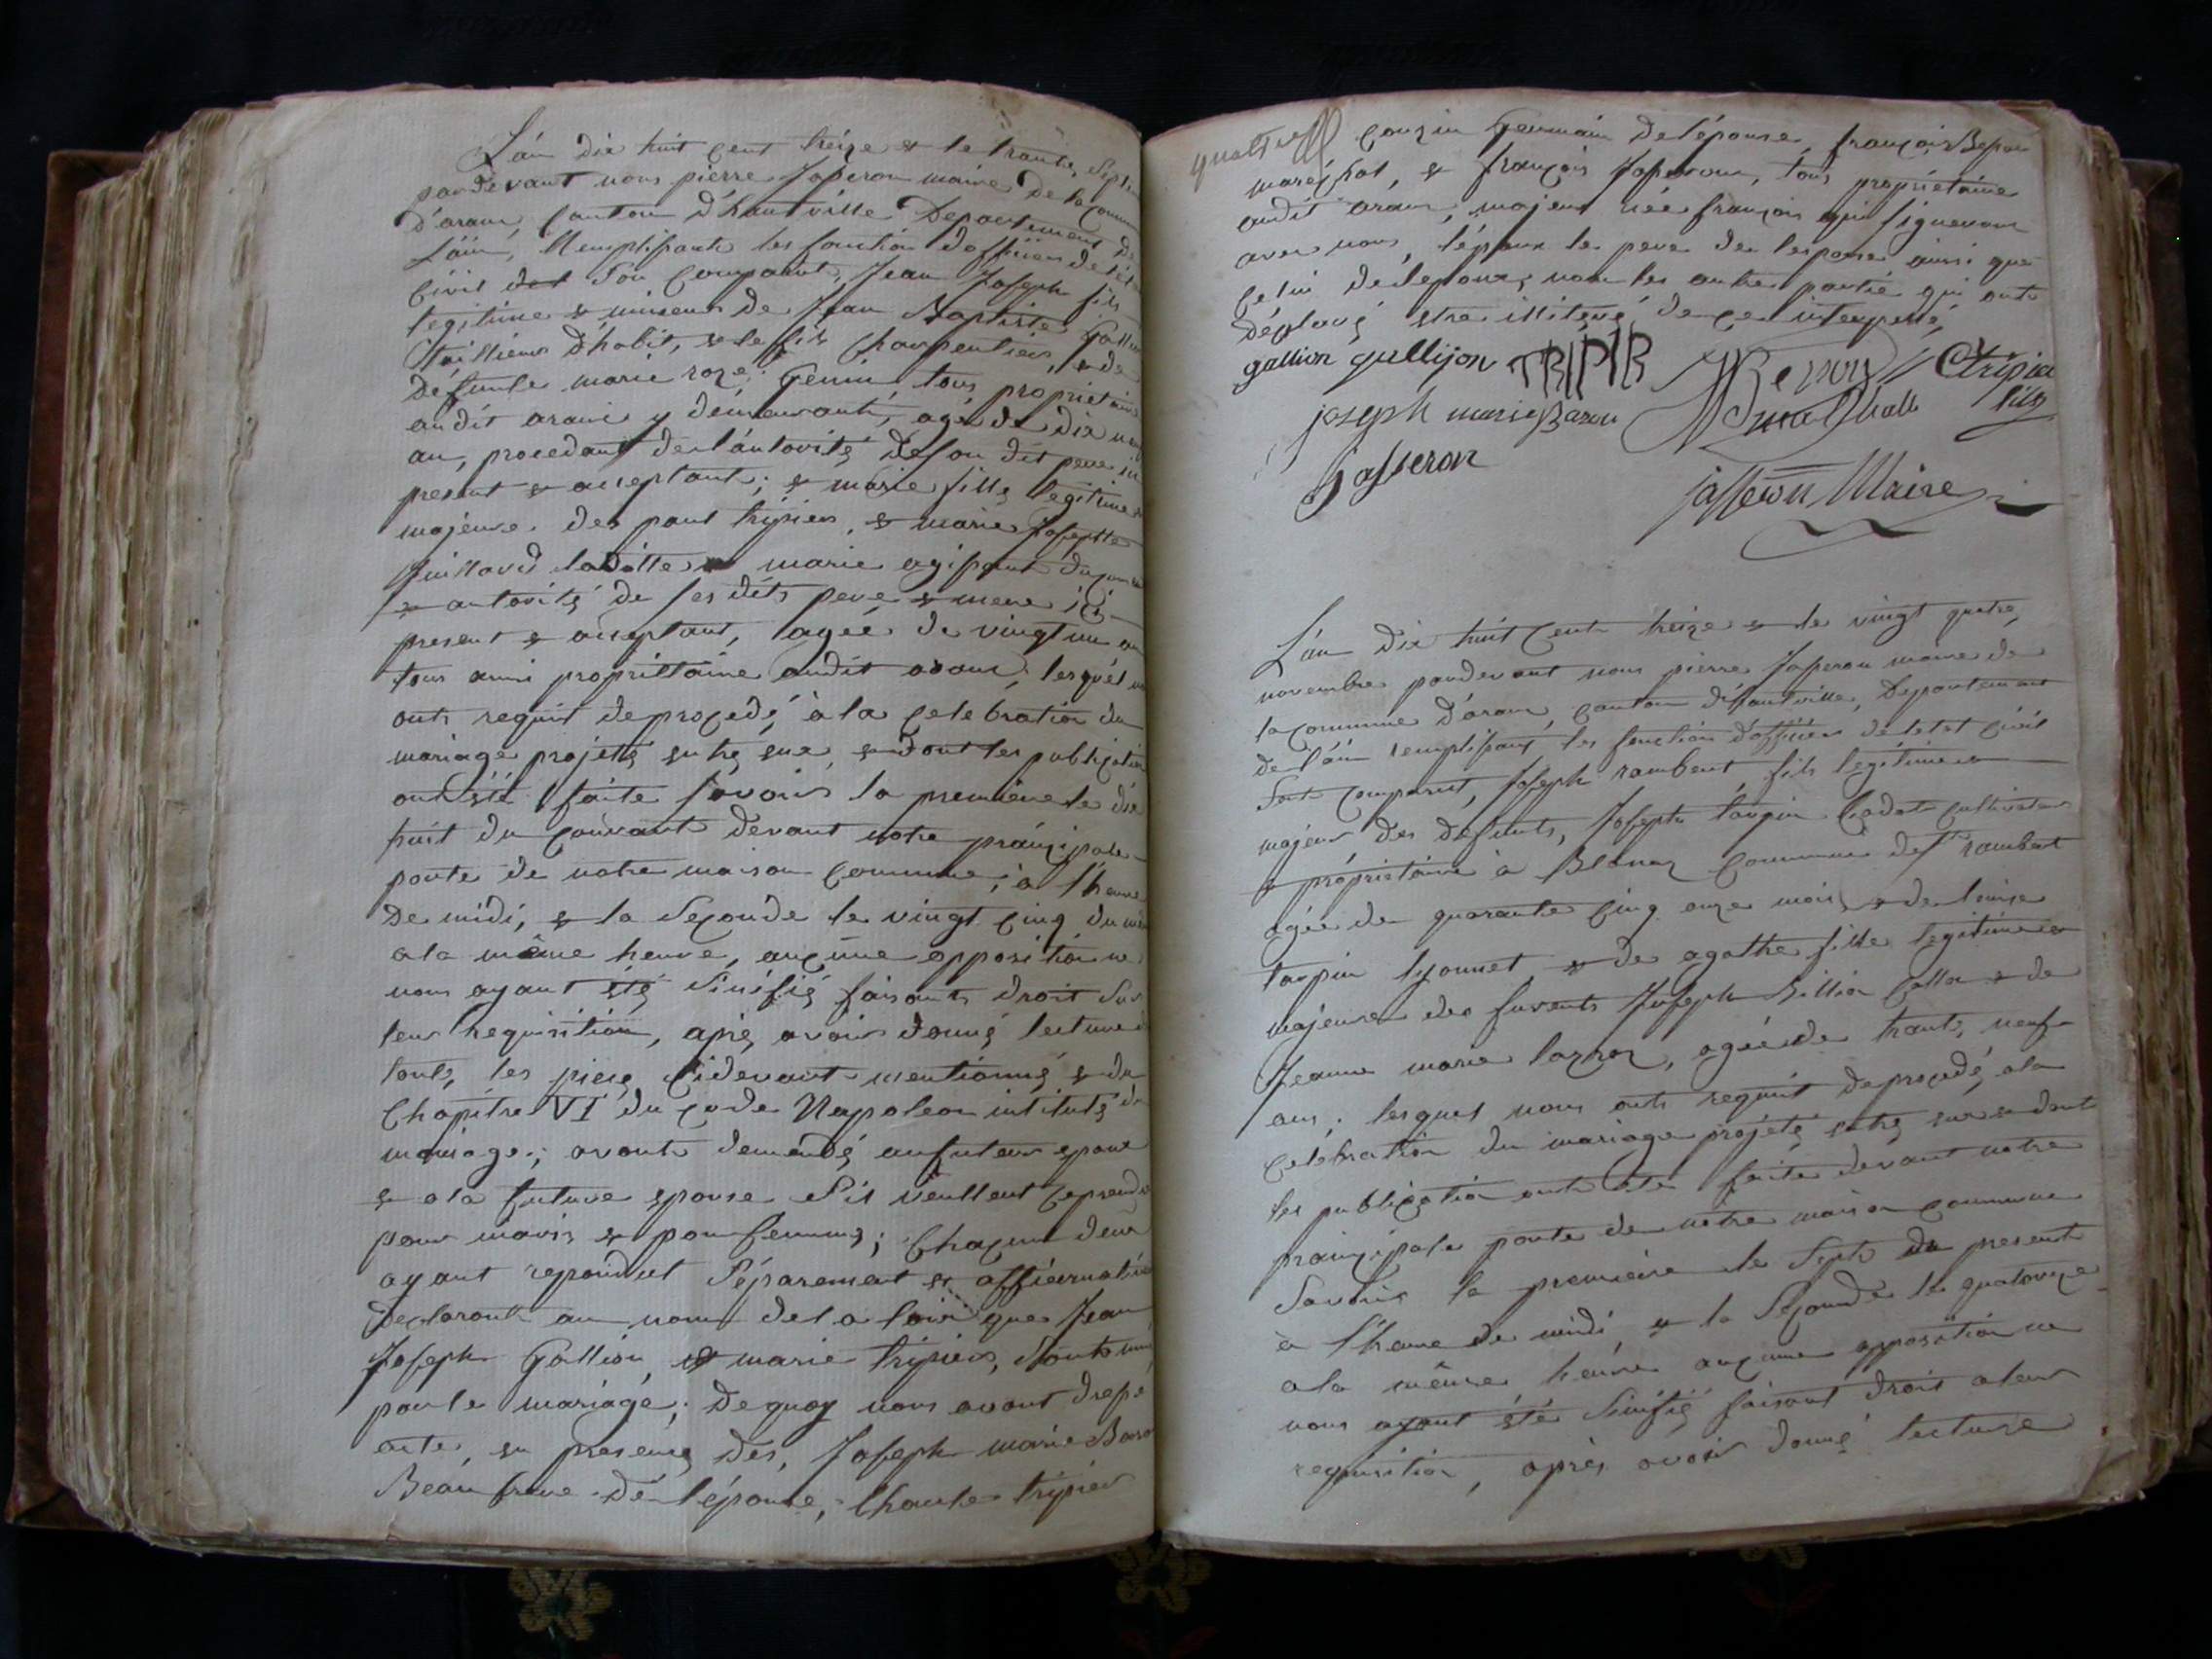 L'án dix huit cent treize & le trante, Septe
pardevant nous pierre Jasseron maire De la Commu
d'aranc, Canton d'hautville Departement De
L'áin, Remplissants les fonction d'officier de l'ét
Civil Son Comparut, Jean Joseph fils
legitime & mineur de Jean Baptiste Gallion
Tailleur d'habit, & le fils Charpentier, & de
Défunte marie roze Genin tous propriétaire
audit aranc y demeurants, agé de dix neuf
an, procedant de l'áutorité de son dit pere ici
present & acceptant; & marie fille legitime &
majeure des paul tripier, & marie Josephte
Juillard laditte marie agissant du
& autorité de ses dits pere & mere ici
present & acceptant, agée de vingt un an
tous aussi propriettaire audit aranc, lesquel no
onts requit de procedé à la Celebration du
mariage projetté entre eux, & dont les publication
onts été faite savoir la premiere le dix
huit du Courant devant notre prainçipale
porte de notre maison Commune, à l'heure
De midi, & la Seconde le vingt Cinq du më
a la même heure, auçune opposition ne
nous ayant été Sinifié faisants droit Sur
leur Requisition, aprés avoir donné lecture d
touts les pieçe Cidevant mentionné & du
Chapitre VI du Code Napoleon intitulé du
mariage; avonts demendé au futeur epoux
& a la future epouse S'ils veullent Ce prendre
pour maris & pour femme; Chaçun deux
ayant repondut Séparement & affiermative
Declaronts au nom de la loix que Jean
Joseph Gallion, & marie tripier, Sonts uni
par le mariage; De quoy nous avont dressé
acte, en presençe des, Joseph marie Baron
Beau frere de l'épouse, Charle tripier
Couzin Germain de l'épouse, françois Bepon
maréçhal, & françois Jasseron, tous propriétaire
audit aranc, majeur née françois qui signeront
avec nous, l'époux le pere de l'espouse ainsi que
Celui de l'epoux, non les autre partie qui onts
déclaré etre illiteré de ce interpellé
gallion gullijon TRIPIR Ctripier
fils
joseph marie Baron
Jasseron
jasseron Maire
L'án Dix huit Cents treize & le vingt quatre,
novembre pardevant nous pierre Jasseron maire de
la Commune d'aranc, Canton d'hautville, Departement
de l'áin remplissant, les fonction d'officier de l'etat Civil
Sont Comparut, Joseph rambert fils legitime &
majeur des defunts, Joseph tarpin Cadet Cultivateur
& propriétaire à Blanaz Commune de St rambert
agée de quarante Cinq onze mois, & de louise
tarpin lyonnet, & de agathe fille legitime &
majeure des Joseph Billion & de
Jeanne marie , agée de trante neuf
ans; lesquel nous onts requit de procedé, a la
Celebration du mariage projeté entre eux & dont
les publication onts été faite devant notre
prainçipale porte de notre maison Commune
Savoir la premiere le Sept du present
à l'heure de midi, & la Seconde le quatorze
a la même heure auçune opposition ne
nous ayant été Sinifié faisant droit a leur
requisition, aprés avoir donné lecture